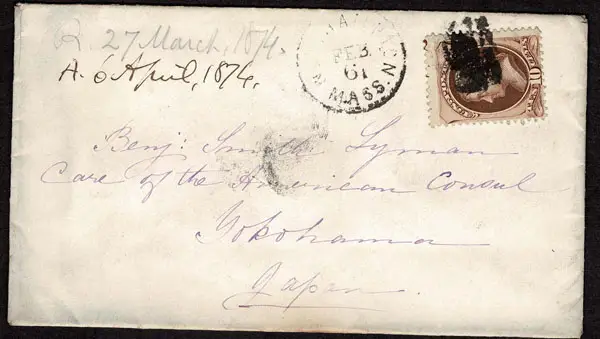 R. 27 March, 1874.
A. 6 April, 1874.
FEB
MASS.
Benj: Smith Lyman
Care of the American Consul
Yokohama
Japan.